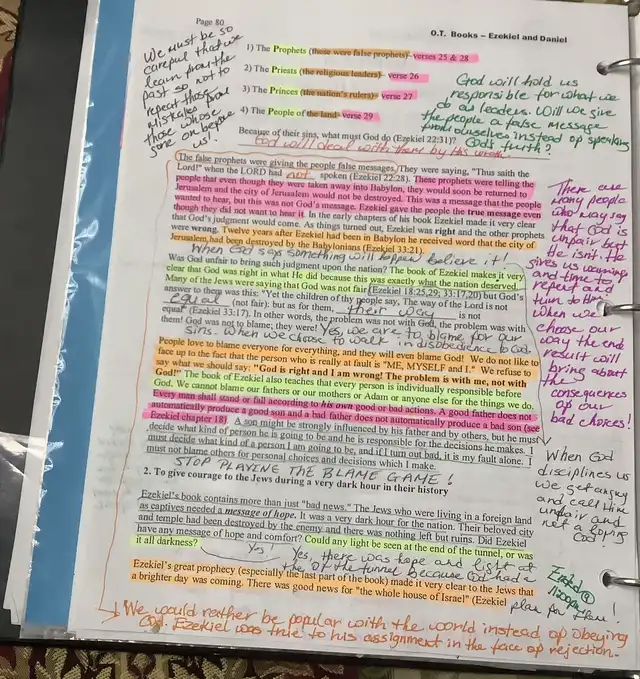 Page 80
O.T. Books – Ezekiel and Daniel
We must be so
careful that we
learn from the
past so not to
repeat those
mistakes from
those whose
gone on before
us!
1) The Prophets (these were false prophets)- verses 25 & 28
2) The Priests (the religious leaders)- verse 26
3) The Princes (the nation's rulers)- verse 27
4) The People of the land- verse 29
God will hold us
responsible for what we
do as leaders. Will we give
the people a false message
from ourselves instead of speaking
God's truth?
Because of their sins, what must God do (Ezekiel 22:31)?
God will deal with them by His wrath.
The false prophets were giving the people false messages. They were saying, "Thus saith the
Lord!" when the LORD had not spoken (Ezekiel 22:28). These prophets were telling the
people that even though they were taken away into Babylon, they would soon be returned to
Jerusalem and the city of Jerusalem would not be destroyed. This was a message that the people
wanted to hear, but this was not God's message. Ezekiel gave the people the true message even
though they did not want to hear it. In the early chapters of his book Ezekiel made it very clear
that God's judgment would come. As things turned out, Ezekiel was right and the other prophets
were wrong. Twelve years after Ezekiel had been in Babylon he received word that the city of
Jerusalem had been destroyed by the Babylonians (Ezekiel 33:21).
When God says something will happen believe it!
Was God unfair to bring such judgment upon the nation? The book of Ezekiel makes it very
clear that God was right in what He did because this was exactly what the nation deserved.
Many of the Jews were saying that God was not fair (Ezekiel 18:25,29; 33:17,20) but God's
answer to them was this: "Yet the children of thy people say, The way of the Lord is not
equal (not fair): but as for them, their way is not
equal (Ezekiel 33:17). In other words, the problem was not with God, the problem was with
them! God was not to blame; they were! Yes, we are to blame for our
sins. When we choose to walk in disobedience to God.
People love to blame everyone for everything, and they will even blame God! We do not like to
face up to the fact that the person who is really at fault is "ME, MYSELF and I." We refuse to
say what we should say: "God is right and I am wrong! The problem is with me, not with
God!" The book of Ezekiel also teaches that every person is individually responsible before
God. We cannot blame our fathers or our mothers or Adam or anyone else for the things we do.
Every man shall stand or fall according to his own good or bad actions. A good father does not
automatically produce a good son and a bad father does not automatically produce a bad son (see
Ezekiel chapter 18). A son might be strongly influenced by his father and by others, but he must
decide what kind of person he is going to be and he is responsible for the decisions he makes. I
must decide what kind of a person I am going to be, and if I turn out bad, it is my fault alone. I
must not blame others for personal choices and decisions which I make.
STOP PLAYING THE BLAME GAME!
There are
many people
who may say
that God is
unfair but
He isn't. He
gives us warning
and time to
repent and
turn to Him
When we
choose our
way the end
result will
bring about
the
consequences
of our
bad choices!
When God
disciplines us
we get angry
and call Him
unfair and
not a loving
God!
2. To give courage to the Jews during a very dark hour in their history
Ezekiel's book contains more than just "bad news." The Jews who were living in a foreign land
as captives needed a message of hope. It was a very dark hour for the nation. Their beloved city
and temple had been destroyed by the enemy and there was nothing left but ruins. Did Ezekiel
have any message of hope and comfort? Could any light be seen at the end of the tunnel, or was
it all darkness?
Yes! Yes, there was hope and light at
the of the tunnel because God had a
plan for them!
Ended @
Ezekiel's great prophecy (especially the last part of the book) made it very clear to the Jews that
a brighter day was coming. There was good news for "the whole house of Israel" (Ezekiel
We would reather be popular with the world instead of obeying
God. Ezekiel was true to his assignment in the face of rejection.